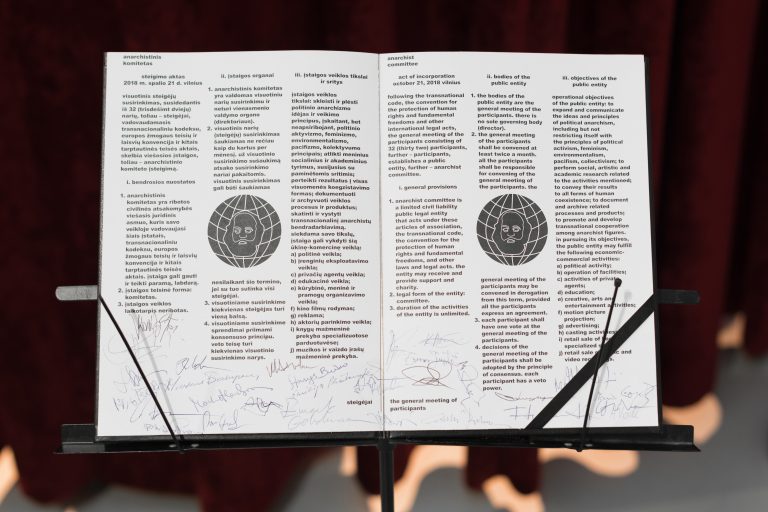 anarchistinis
komitetas
steigimo aktas
2018 m. spalio 21 d. vilnius
visuotinis steigėjų
susirinkimas, susidedantis
iš 32 (trisdešimt dviejų)
narių, toliau – steigėjai,
vadovaudamasis
transnacionaliniu kodeksu,
europos žmogaus teisių ir
laisvių konvencija ir kitais
tarptautinės teisės aktais,
skelbia viešosios įstaigos,
toliau – anarchistinio
komiteto (steigimą).
i. bendrosios nuostatos
1. anarchistinis
komitetas yra ribotos
civilinės atsakomybės
viešasis juridinis
asmuo, kuris savo
veikloje vadovaujasi
šiais įstatais,
transnacionaliniu
kodeksu, europos
žmogaus teisių ir laisvių
konvencija ir kitais
tarptautinės teisės
aktais. įstaiga gali gauti
ir teikti paramą, labdarą.
2. įstaigos teisinė forma:
komitetas.
3. įstaigos veiklos
laikotarpis neribotas.
ii. įstaigos organai
1. anarchistinis komitetas
yra valdomas visuotiniu
narių susirinkimu ir
neturi vienasmenio
valdymo organo
(direktoriaus).
2. visuotinis narių
(steigėjų) susirinkimas
šaukiamas ne rečiau
kaip du kartus per
mėnesį. už visuotinio
susirinkimo sušaukimą
atsako susirinkimo
nariai pakaitomis.
visuotinis susirinkimas
gali būti šaukiamas
nesilaikant šio termino,
jei su tuo sutinka visi
steigėjai.
3. visuotiniame susirinkime
kiekvienas steigėjas turi
vieną balsą.
4. visuotiniame susirinkime
sprendimai priimami
konsensuso principu.
veto teisę turi
kiekvienas visuotinio
susirinkimo narys.
iii. įstaigos veiklos tikslai
ir sritys
įstaigos veiklos
tikslai: skleisti ir plėsti
politinio anarchizmo
idėjas ir veikimo
principus, įskaitant, bet
neapsiribojant, politinio
aktyvizmo, feminizmo,
environmentalizmo,
pacifizmo, kolektyvumo
principais; atlikti meninius
socialinius ir akademinius
tyrimus, susijusius su
paminėtomis sritimis;
perteikti rezultatus į visas
visuomenės koegzistavimo
formas; dokumentuoti
ir archyvuoti veiklos
procesus ir produktus;
skatinti ir vystyti
transnacionalinį anarchistų
bendradarbiavimą.
siekdama savo tikslų,
įstaiga gali vykdyti šią
ūkinę-komercinę veiklą:
a) politinė veikla;
b) įrenginių eksploatavimo
veikla;
c) privačių agentų veikla;
d) edukacinė veikla;
e) kūrybinė, meninė ir
pramogų organizavimo
veikla;
f) kino filmų rodymas;
g) reklama;
h) aktorių parinkimo veikla;
i) knygų mažmeninė
prekyba specializuotose
parduotuvėse;
j) muzikos ir vaizdo įrašų
mažmeninė prekyba.
steigėjai
anarchist
committee
act of incorporation
october 21, 2018 vilnius
following the transnational
code, the convention for
the protection of human
rights and fundamental
freedoms and other
international legal acts,
the general meeting of
participants consisting of
32 (thirty two) participants,
further - participants,
establishes a public
entity, further – anarchist
committee.
i. general provisions
1. anarchist committee is
a limited civil liability
public legal entity
that acts under these
articles of association,
the transnational code,
the convention for the
protection of human rights
and fundamental
freedoms, and other
laws and legal acts. the
entity may receive and
provide support and
charity.
2. legal form of the entity:
committee.
3. duration of the activities
of the entity is unlimited.
the general meeting of
participants
ii. bodies of the
public entity
1. the bodies of the
public entity are the
general meeting of the
participants, there is
no sole governing body
(director).
2. the general meeting
of the participants
shall be convened at
least twice a month.
all the participants
shall be responsible
for convening of the
general meeting of
participants. the
general meeting of the
participants may be
convened in derogation
from this term, provided
all the participants
express an agreement.
3. each participant shall
have one vote at the
general meeting of the
participants.
4. decisions of the
general meeting of
participants shall be
adopted by the principle
of consensus. each
participant has a veto
power.
iii. objectives of the
public entity
operational objectives
of the public entity: to
expand and communicate
the ideas and principles
of political anarchism,
including but not
restricting itself with
the principles of political
activism, feminism,
environmentalism,
pacifism, collectivism; to
perform social, artistic and
academic research related
to the activities mentioned;
to convey their results
to all forms of human
coexistence; to document
and archive related
processes and products;
to promote and develop
transnational cooperation
among anarchist figures.
in pursuing its objectives,
the public entity may fulfill
the following economic-
commercial activities:
a) political activity;
b) operation of facilities;
c) activities of private
agents;
d) education;
e) creative, arts and
entertainment activities;
f) motion picture
projection;
g) advertising;
h) casting activities;
i) retail sale of
specialized
j) retail sale of and
video